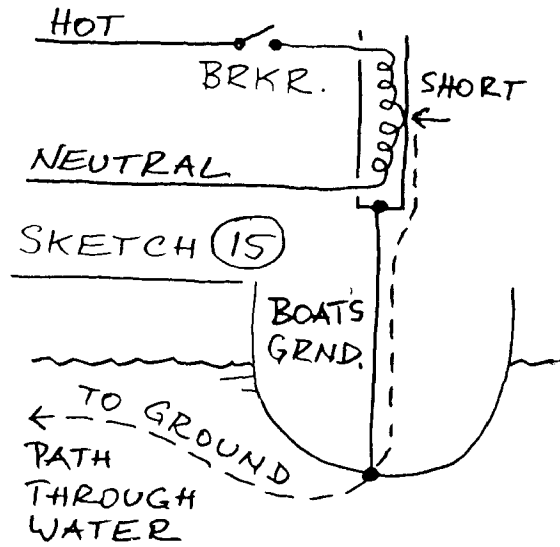 HOT
BRKR.
SHORT
NEUTRAL
SKETCH 15
BOAT'S
GRND.
TO GROUND
PATH
THROUGH
WATER